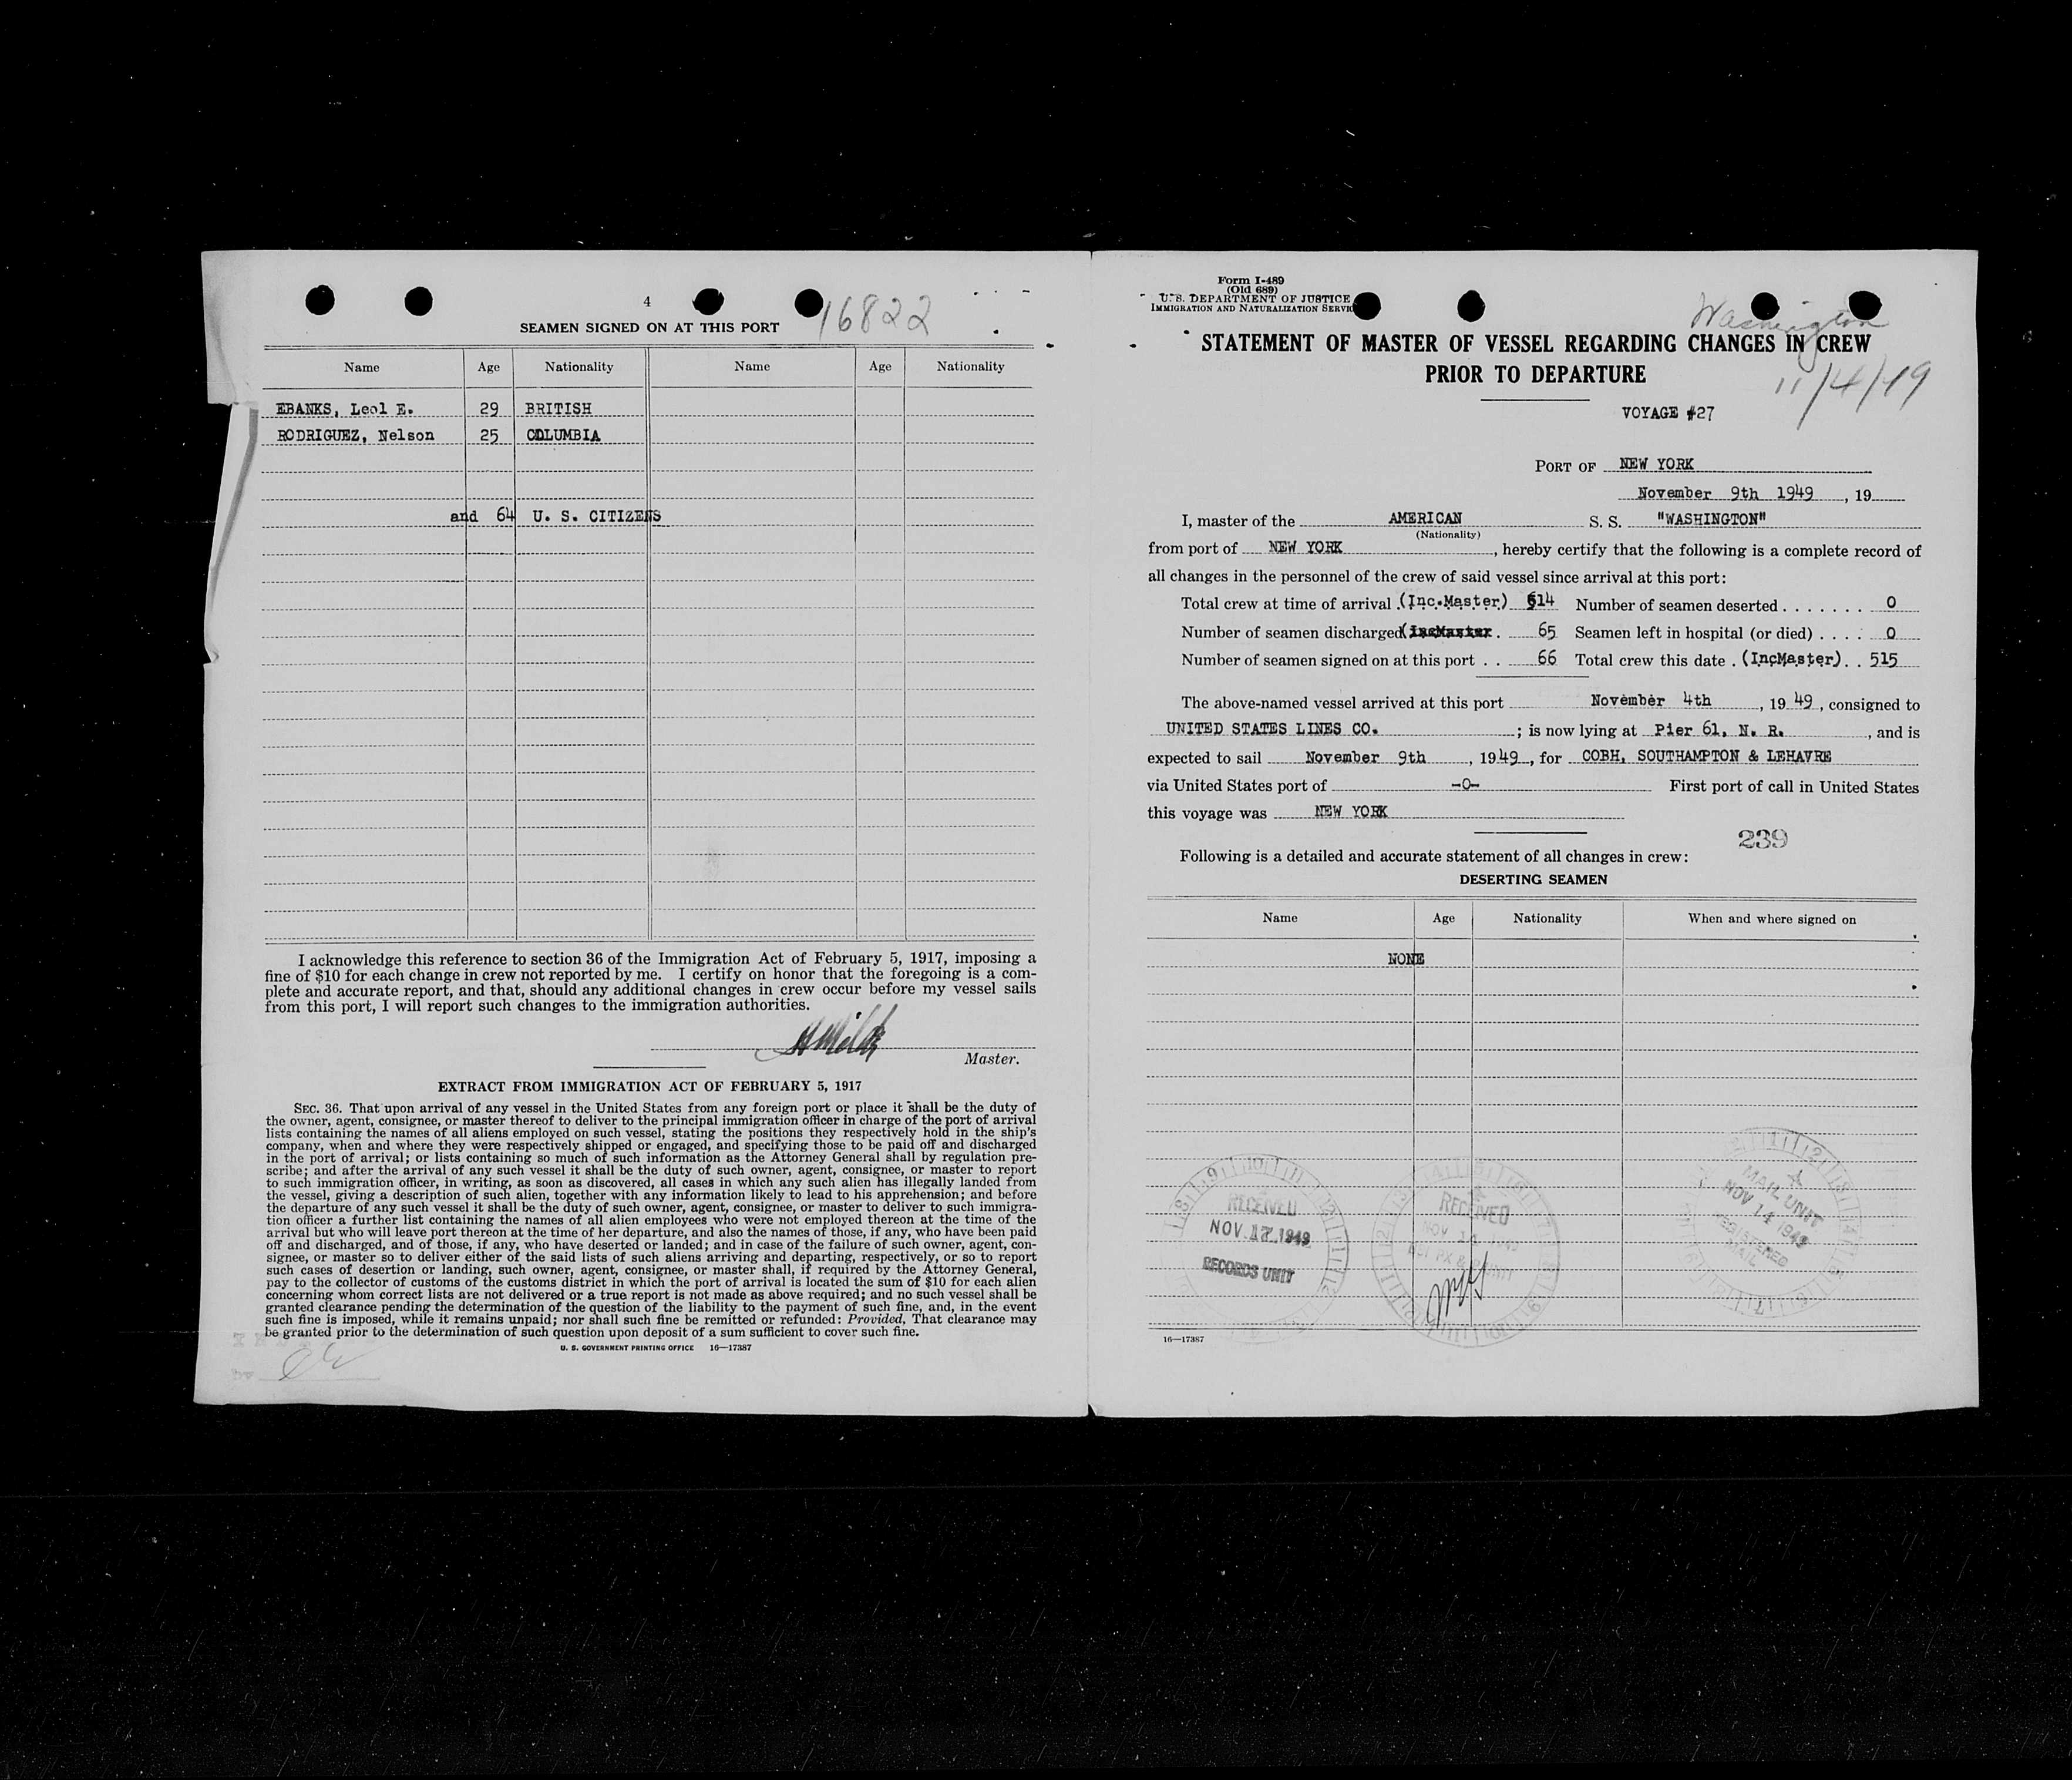 4
16822
SEAMEN SIGNED ON AT THIS PORT
Name Age Nationality Name Age Nationality
EBANKS, Leol E. 29 BRITISH
RODRIGUEZ, Nelson 25 COLUMBIA
and 64 U. S. CITIZENS
I acknowledge this reference to section 36 of the Immigration Act of February 5, 1917, imposing a
fine of $10 for each change in crew not reported by me. I certify on honor that the foregoing is a com-
plete and accurate report, and that, should any additional changes in crew occur before my vessel sails
from this port, I will report such changes to the immigration authorities.
Master.
EXTRACT FROM IMMIGRATION ACT OF FEBRUARY 5, 1917
SEC. 36. That upon arrival of any vessel in the United States from any foreign port or place it shall be the duty of
the owner, agent, consignee, or master thereof to deliver to the principal immigration officer in charge of the port of arrival
lists containing the names of all aliens employed on such vessel, stating the positions they respectively hold in the ship's
company, when and where they were respectively shipped or engaged, and specifying those to be paid off and discharged
in the port of arrival; or lists containing so much of such information as the Attorney General shall by regulation pre-
scribe; and after the arrival of any such vessel it shall be the duty of such owner, agent, consignee, or master to report
to such immigration officer, in writing, as soon as discovered, all cases in which any such alien has illegally landed from
the vessel, giving a description of such alien, together with any information likely to lead to his apprehension; and before
the departure of any such vessel it shall be the duty of such owner, agent, consignee, or master to deliver to such immigra-
tion officer a further list containing the names of all alien employees who were not employed thereon at the time of the
arrival but who will leave port thereon at the time of her departure, and also the names of those, if any, who have been paid
off and discharged, and of those, if any, who have deserted or landed; and in case of the failure of such owner, agent, con-
signee, or master so to deliver either of the said lists of such aliens arriving and departing, respectively, or so to report
such cases of desertion or landing, such owner, agent, consignee, or master shall, if required by the Attorney General,
pay to the collector of customs of the customs district in which the port of arrival is located the sum of $10 for each alien
concerning whom correct lists are not delivered or a true report is not made as above required; and no such vessel shall be
granted clearance pending the determination of the question of the liability to the payment of such fine, and, in the event
such fine is imposed, while it remains unpaid; nor shall such fine be remitted or refunded: Provided, That clearance may
be granted prior to the determination of such question upon deposit of a sum sufficient to cover such fine.
U. S. GOVERNMENT PRINTING OFFICE 16—17387
Form I-489
(Old 689)
U. S. DEPARTMENT OF JUSTICE
IMMIGRATION AND NATURALIZATION SERVIC
Washington
STATEMENT OF MASTER OF VESSEL REGARDING CHANGES IN CREW
PRIOR TO DEPARTURE
11/4/49
VOYAGE #27
PORT OF NEW YORK
November 9th 1949, 19
I, master of the AMERICAN S. S. "WASHINGTON"
(Nationality)
from port of NEW YORK, hereby certify that the following is a complete record of
all changes in the personnel of the crew of said vessel since arrival at this port:
Total crew at time of arrival (Inc.Master) 514 Number of seamen deserted . . . . . . . 0
Number of seamen discharged(IncMaster . 65 Seamen left in hospital (or died) . . . . 0
Number of seamen signed on at this port . . 66 Total crew this date . (IncMaster). . 515
The above-named vessel arrived at this port November 4th, 19 49, consigned to
UNITED STATES LINES CO.; is now lying at Pier 61, N. R., and is
expected to sail November 9th, 1949, for COBH, SOUTHAMPTON & LEHAVRE
via United States port of -0- First port of call in United States
this voyage was NEW YORK
239
Following is a detailed and accurate statement of all changes in crew:
DESERTING SEAMEN
Name Age Nationality When and where signed on
NONE
RECEIVED
NOV 17 1949
RECORDS UNIT
RECEIVED
NOV 14 1949
MAIL UNIT
NOV 14 1949
REGISTERED
MAIL
16—17387